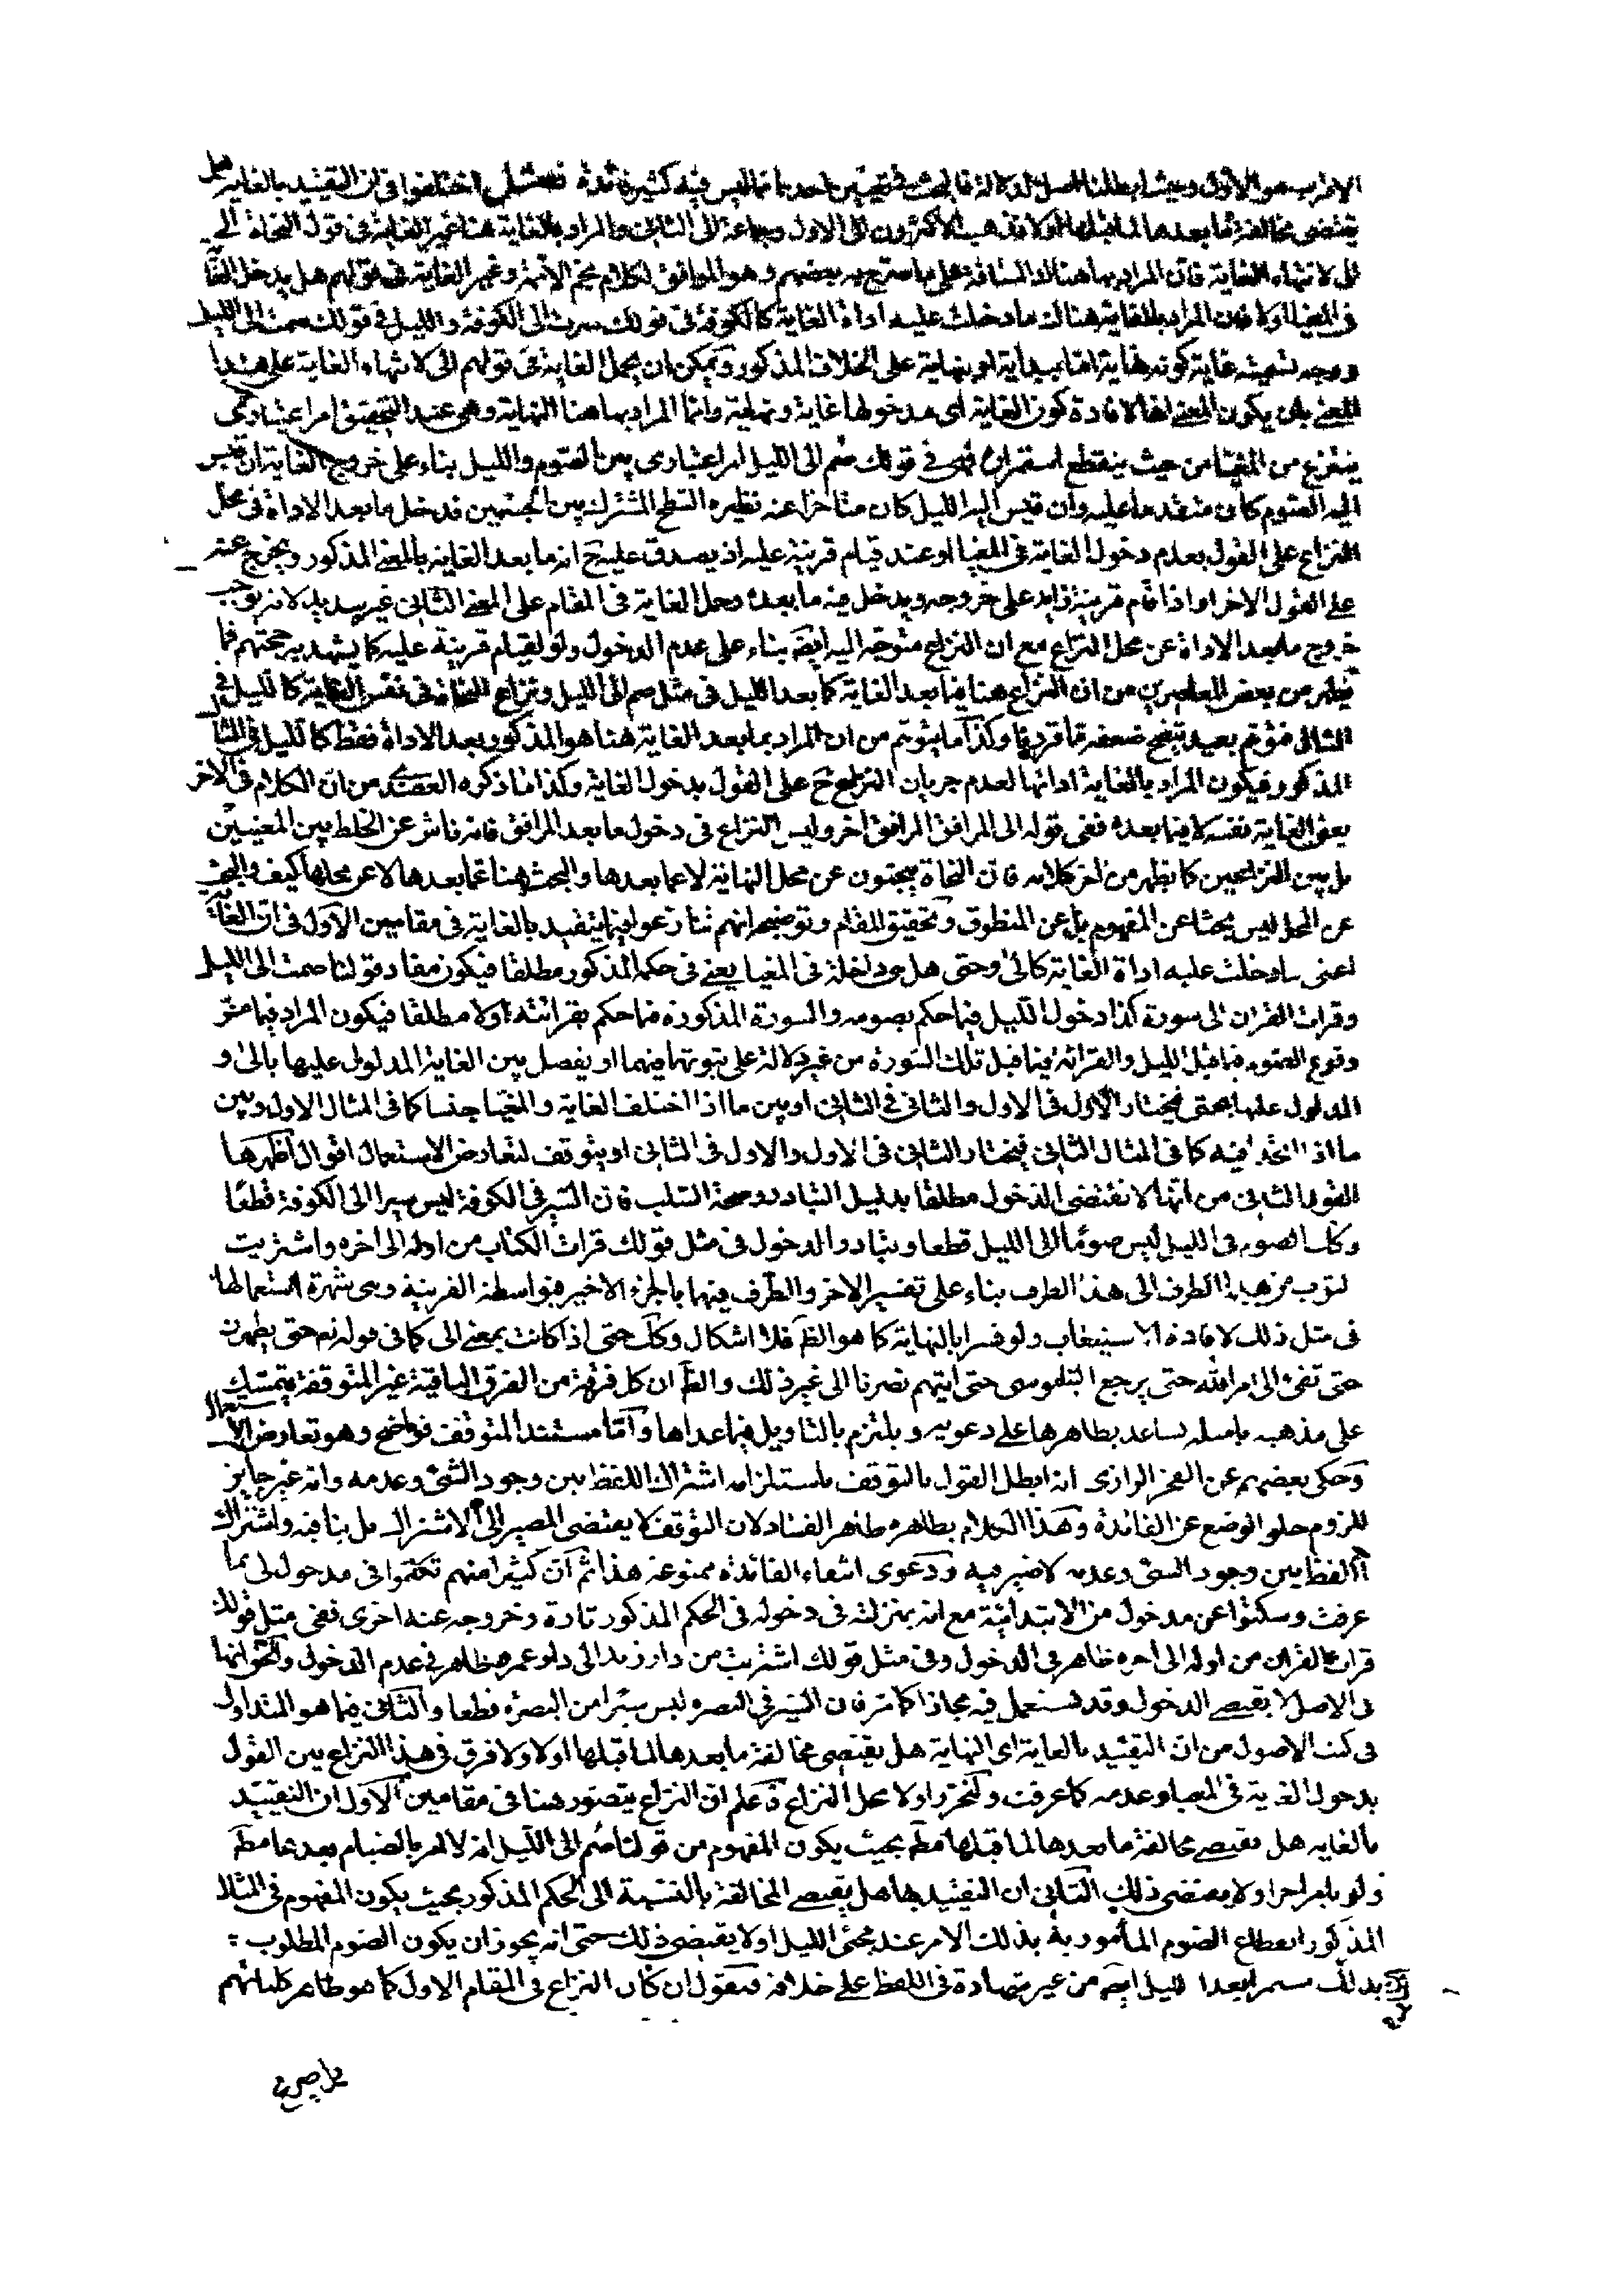 الاقرب هو الاول وحيث ابطلنا اصل الدلالة فالبحث في تعيين احدهما مما ليس فيه كثير فائدة فصل اختلفوا في ان التقييد بالغاية هل
يقتضي مخالفة ما بعدها لما قبلها او لا فذهب الاكثرون الى الاول وجماعة الى الثاني والمراد بالغاية هنا غير الغاية في قول النحاة الى
لانتهاء الغاية فان المراد بها هناك المسافة على ما صرح به بعضهم وهو الموافق لكلام نجم الائمة وغير الغاية في قولهم هل يدخل الغاية
في المغيا او لا فان المراد بالغاية هناك ما دخلت عليه اداة الغاية كالكوفة في قولك سرت الى الكوفة والليل في قولك صمت الى الليل
ووجه تسميته غاية كونه غاية اما بداية او نهاية على الخلاف المذكور ويمكن ان يحمل الغاية في قولهم الى لانتهاء الغاية على هذا
المعنى بان يكون المعنى انها لافادة كون الغاية اى مدخولها غاية ونهاية وانما المراد بها هنا النهاية وهي عند التحقيق امر اعتبارى
ينتزع من المغيا من حيث ينقطع استمراره فهى في قولك صم الى الليل امر اعتبارى بين الصوم والليل بناء على خروج الغاية ان قيس
اليه الصوم كان متقدما عليه وان قيس اليه الليل كان متاخرا عنه نظيره السطح المشترك بين الجسمين فدخل ما بعد الاداة في محل
النزاع على القول بعدم دخول الغاية في المغيا او عند قيام قرينة عليه اذ يصدق عليه ح انه ما بعد الغاية بالمعنى المذكور ويخرج عنه
على القول الاخر او اذا قام قرينة زايد على خروجه ويدخل فيه ما بعده وحمل الغاية في المقام على المعنى الثاني غير سديد لانه يوجب
خروج ما بعد الاداة عن محل النزاع مع ان النزاع متوجه اليه ايضا بناء على عدم الدخول ولو لقيام قرينة عليه كما يشهد به حجتهم فما
يظهر من بعض المعاصرين من ان النزاع هنا فيما بعد الغاية كما بعد الليل في مثل صم الى الليل ونزاع النحاة في نفس الغاية كالليل في
المثال فتوهم بعيد يتضح ضعفه مما قررنا وكذا ما يتوهم من ان المراد بما بعد الغاية هنا هو المذكور بعد الاداة فقط كالليل في المثال
المذكور فيكون المراد بالغاية اداتها لعدم جريان النزاع ح على القول بدخول الغاية وكذا ما ذكره العضدى من ان الكلام في الاخر
يعنى الغاية نفسه لا فيما بعده ففي قوله الى المرافق المرافق اخر وليس النزاع في دخول ما بعد المرافق فانه ناش عن الخلط بين المعنيين
بل بين النزاعين كما يظهر من اخر كلامه فان النحاة يبحثون عن محل النهاية لا عما بعدها والبحث هنا عما بعدها لا عن محلها كيف والبحث
عن المحل ليس بحثا عن المفهوم بل عن المنطوق وتحقيق المقام وتوضيحه انهم تنازعوا فيما يتقيد بالغاية في مقامين الاول في ان الغاية
اعنى ما دخلت عليه اداة الغاية كالى وحتى هل هى داخلة في المغيا يعنى في حكمه المذكور مطلقا فيكون مفاد قولنا صمت الى الليل
وقرات القران الى سورة كذا دخول الليل فيما حكم بصومه والسورة المذكورة فيما حكم بقرائته او لا مطلقا فيكون المراد فيما مر
وقوع الصوم فيما قبل الليل والقرائة فيما قبل تلك السورة من غير دلالة على ثبوتهما فيهما او يفصل بين الغاية المدلول عليها بالى و
المدلول عليها بحتى فيختار الاول في الاول والثاني في الثاني او بين ما اذا اختلف الغاية والمغيا جنسا كما في المثال الاول وبين
ما اذا اتحدا فيه كما في المثال الثاني فيختار الثاني في الاول والاول في الثاني او يتوقف لتعارض الاستعمال اقوال اظهرها
القول الثاني من انها لا تقتضي الدخول مطلقا بدليل التبادر وصحة السلب فان السير في الكوفة ليس سيرا الى الكوفة قطعا
وكذا الصوم في الليل ليس صوما الى الليل قطعا وتبادر الدخول في مثل قولك قرات الكتاب من اوله الى اخره واشتريت
الثوب من هذا الطرف الى هذا الطرف بناء على تفسير الاخر والطرف فيهما بالجزء الاخير فبواسطة القرينة وهى شهرة استعمالها
في مثل ذلك لافادة الاستيعاب ولو فسرا بالنهاية كما هو الظ فلا اشكال وكك حتى اذا كانت بمعنى الى كما في قوله تع حتى يطهرن
حتى تفئ الى امر الله حتى يرجع الينا موسى حتى اتيهم نصرنا الى غير ذلك والظ ان كل فرقة من الفرق الباقية غير المتوقفة يتمسك
على مذهبه بامثلة تساعد بظاهرها على دعويه ويلتزم بالتاويل فيما عداها واما مستند المتوقف فواضح وهو تعارض الاستعمال
وحكى بعضهم عن الفخر الرازى انه ابطل القول بالتوقف باستلزامه اشتراك اللفظ بين وجود الشئ وعدمه وانه غير جايز
للزوم خلو الوضع عن الفائدة وهذا الكلام بظاهره ظاهر الفساد لان التوقف لا يقتضي المصير الى الاشتراك بل ينافيه واشتراك
اللفظ بين وجود الشئ وعدمه لا ضير فيه ودعوى انتفاء الفائدة ممنوعة هذا ثم ان كثيرا منهم تكلموا في مدخول الى بما
عرفت وسكتوا عن مدخول من الابتدائية مع انه بمنزلته في دخوله في الحكم المذكور تارة وخروجه عنه اخرى ففي مثل قولك
قرات القران من اوله الى اخره ظاهر في الدخول وفي مثل قولك اشتريت من دار زيد الى دار عمرو ظاهر في عدم الدخول والحق انها
في الاصل لا يقتضي الدخول وقد تستعمل فيه مجازا كما مر فان السير في البصرة ليس سيرا من البصرة قطعا والثاني فيما هو المتداول
في كتب الاصول من ان التقييد بالغاية اى النهاية هل يقتضي مخالفة ما بعدها لما قبلها او لا ولا فرق في هذا النزاع بين القول
بدخول الغاية في المغيا وعدمه كما عرفت ولنحرر اولا محل النزاع فاعلم ان النزاع يتصور هنا في مقامين الاول ان التقييد
بالغاية هل يقتضي مخالفة ما بعدها لما قبلها مط بحيث يكون المفهوم من قولنا صم الى الليل انه لا امر بالصيام بعدها مط
ولو بامر اخر او لا يقتضي ذلك الثاني ان التقييد بها هل يقتضي المخالفة بالنسبة الى الحكم المذكور بحيث يكون المفهوم في المثال
المذكور انقطاع الصوم المأمور به بذلك الامر عند مجئ الليل او لا يقتضي ذلك حتى انه يجوز ان يكون الصوم المطلوب
بذلك مستمرا بعد الليل ايضا من غير شهادة في اللفظ على خلافه فنقول ان كان النزاع في المقام الاول كما هو ظاهر كلماتهم